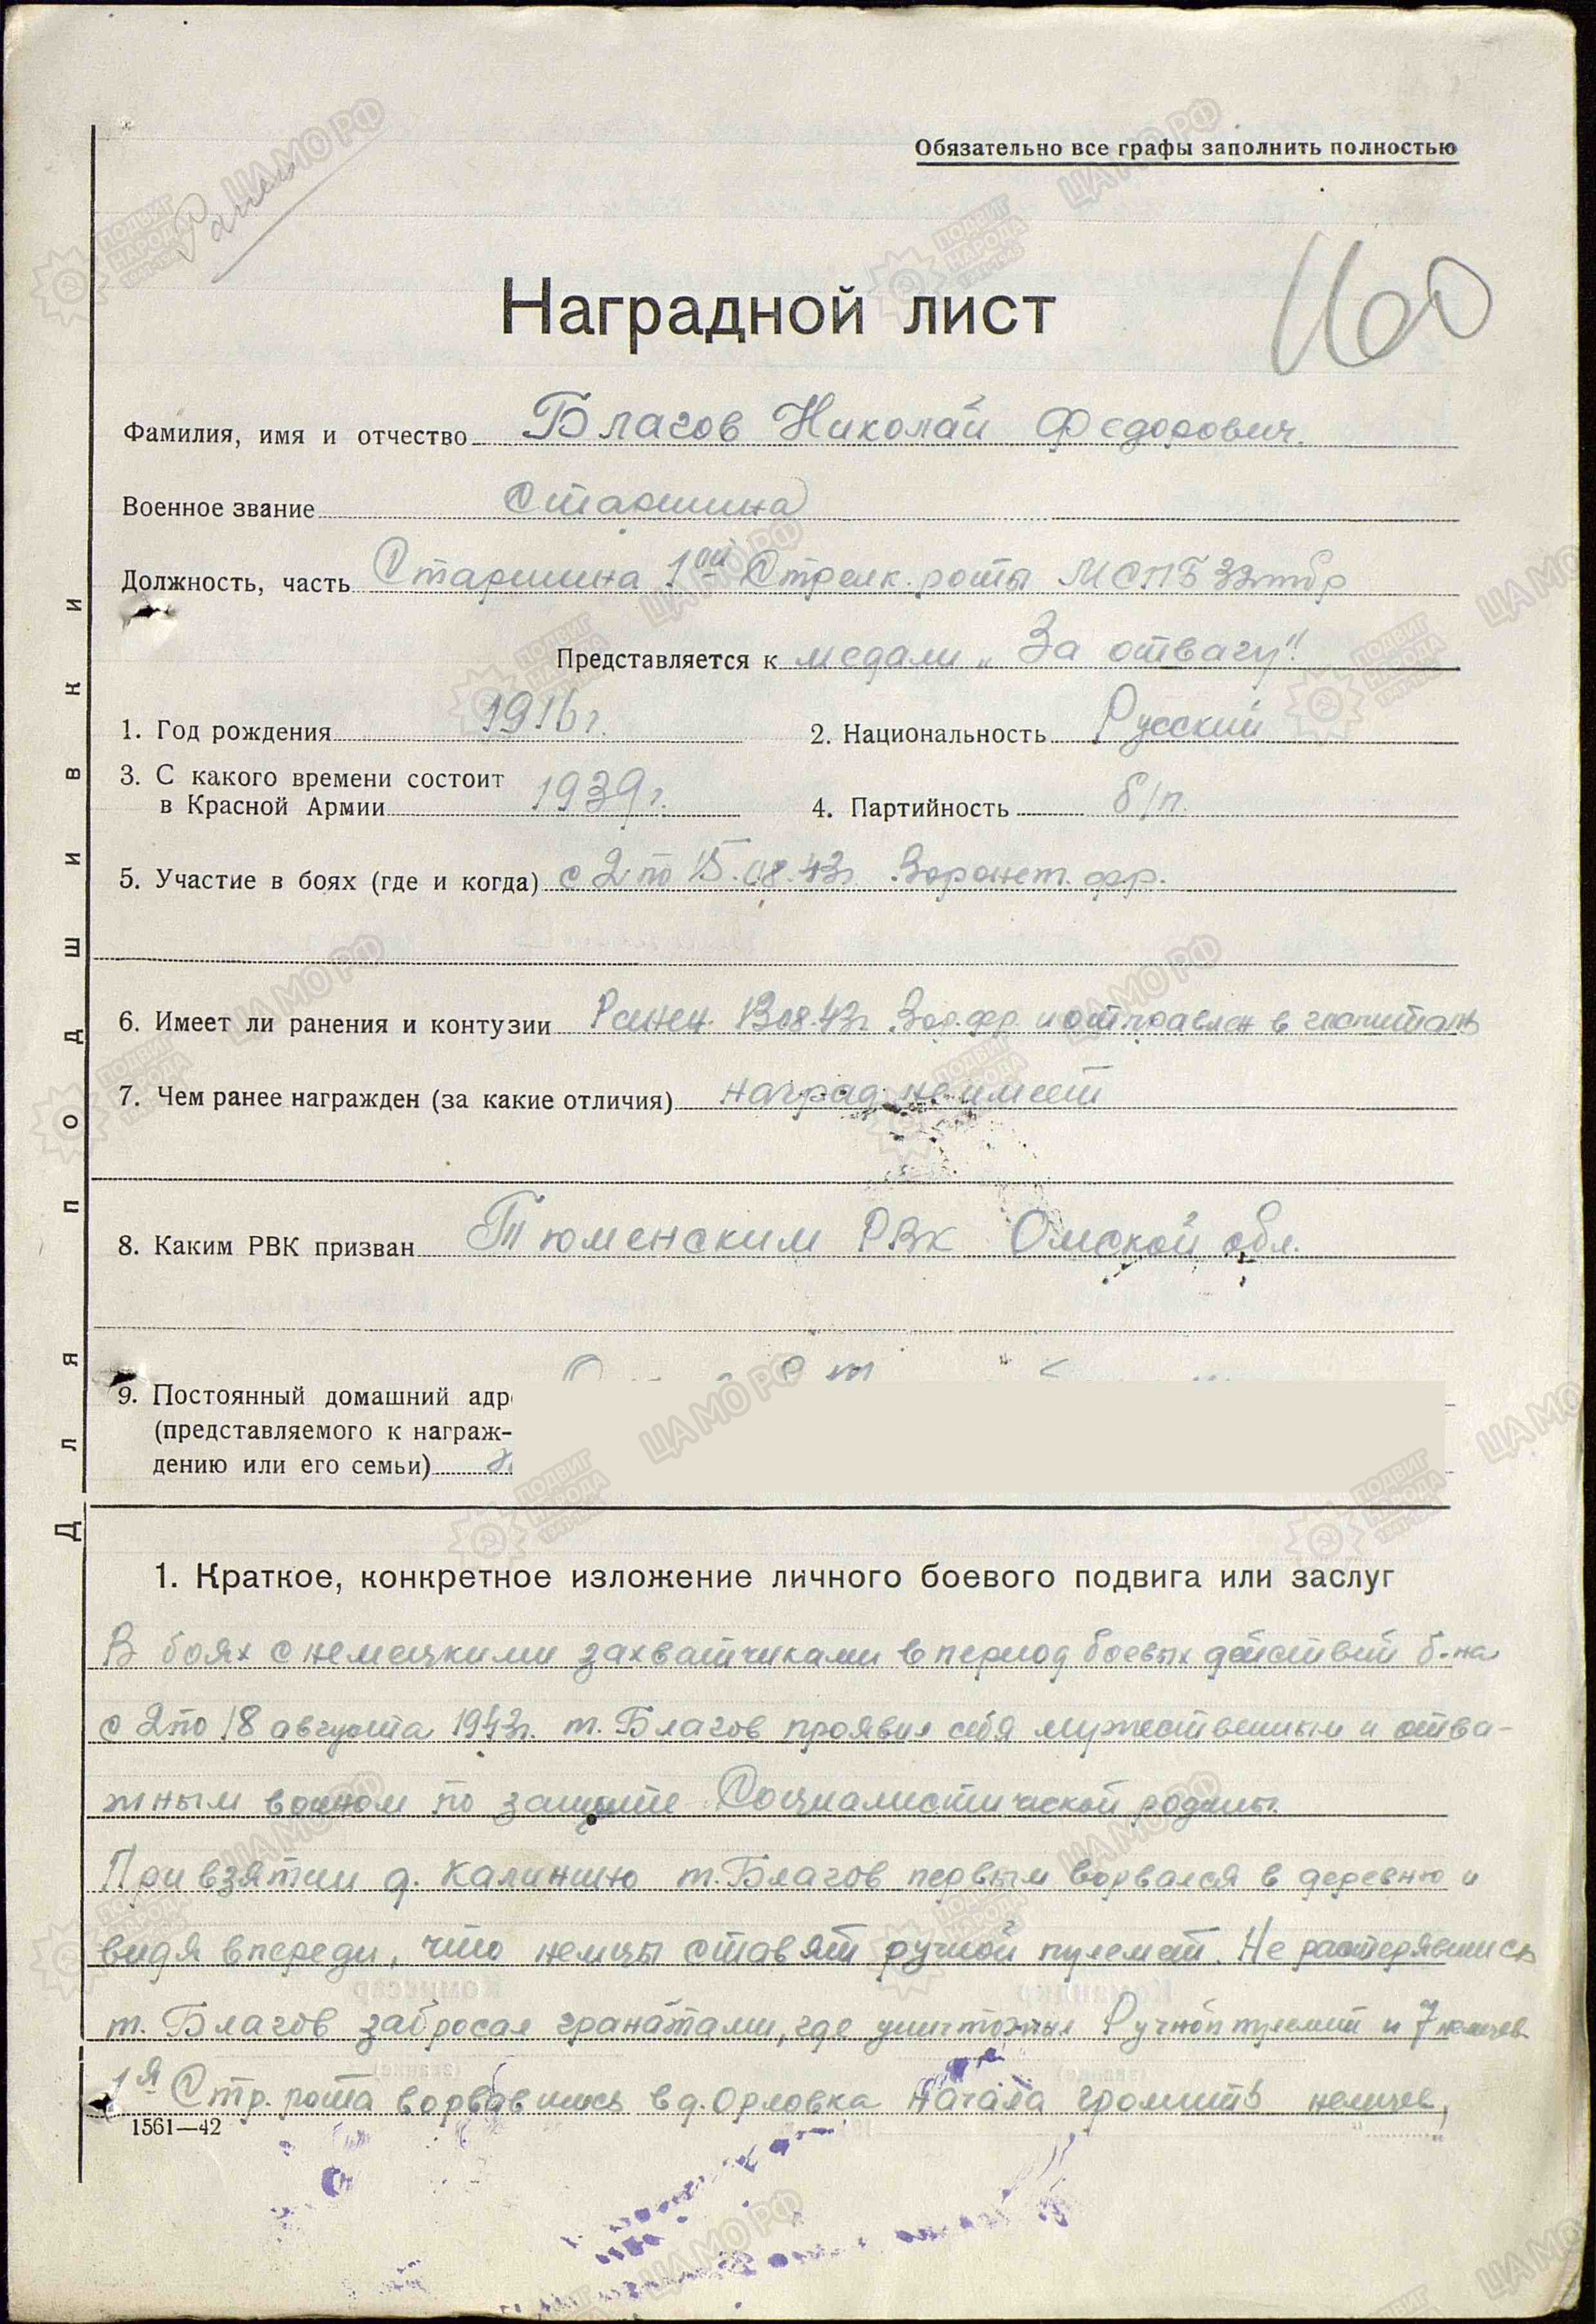 Обязательно все графы заполнить полностью
Ранен
160
Наградной лист
Фамилия, имя и отчество Благов Николай Федорович.
Военное звание Старшина
Должность, часть Старшина 1ой Стрелк. роты МСПБ 32тбр
Представляется к медали „За отвагу".
1. Год рождения 1916 г. 2. Национальность Русский
3. С какого времени состоит
в Красной Армии 1939 г. 4. Партийность б/п.
5. Участие в боях (где и когда) с 2 по 15.08.43г. Воронеж. фр.
6. Имеет ли ранения и контузии Ранен. 13.08.43г. Вор. фр. и отправлен в госпиталь
7. Чем ранее награжден (за какие отличия) наград не имеет
8. Каким РВК призван Тюменским РВК Омской обл.
9. Постоянный домашний адр
(представляемого к награж-
дению или его семьи)
Для подшивки
1. Краткое, конкретное изложение личного боевого подвига или заслуг
В боях с немецкими захватчиками в период боевых действий б-на
с 2 по 18 августа 1943г. т. Благов проявил себя мужественным и отва-
жным воином по защите Социалистической родины.
При взятии д. Калинино т. Благов первым ворвался в деревню и
видя впереди, что немцы ставят ручной пулемет. Не растерявшись
т. Благов забросал гранатами, где уничтожил Ручной пулемет и 7 немцев
1я Стр. рота ворвавшись в д. Орловка начала громить немцев,
1561—42
ЦАМО РФ
ПОДВИГ НАРОДА 1941-1945